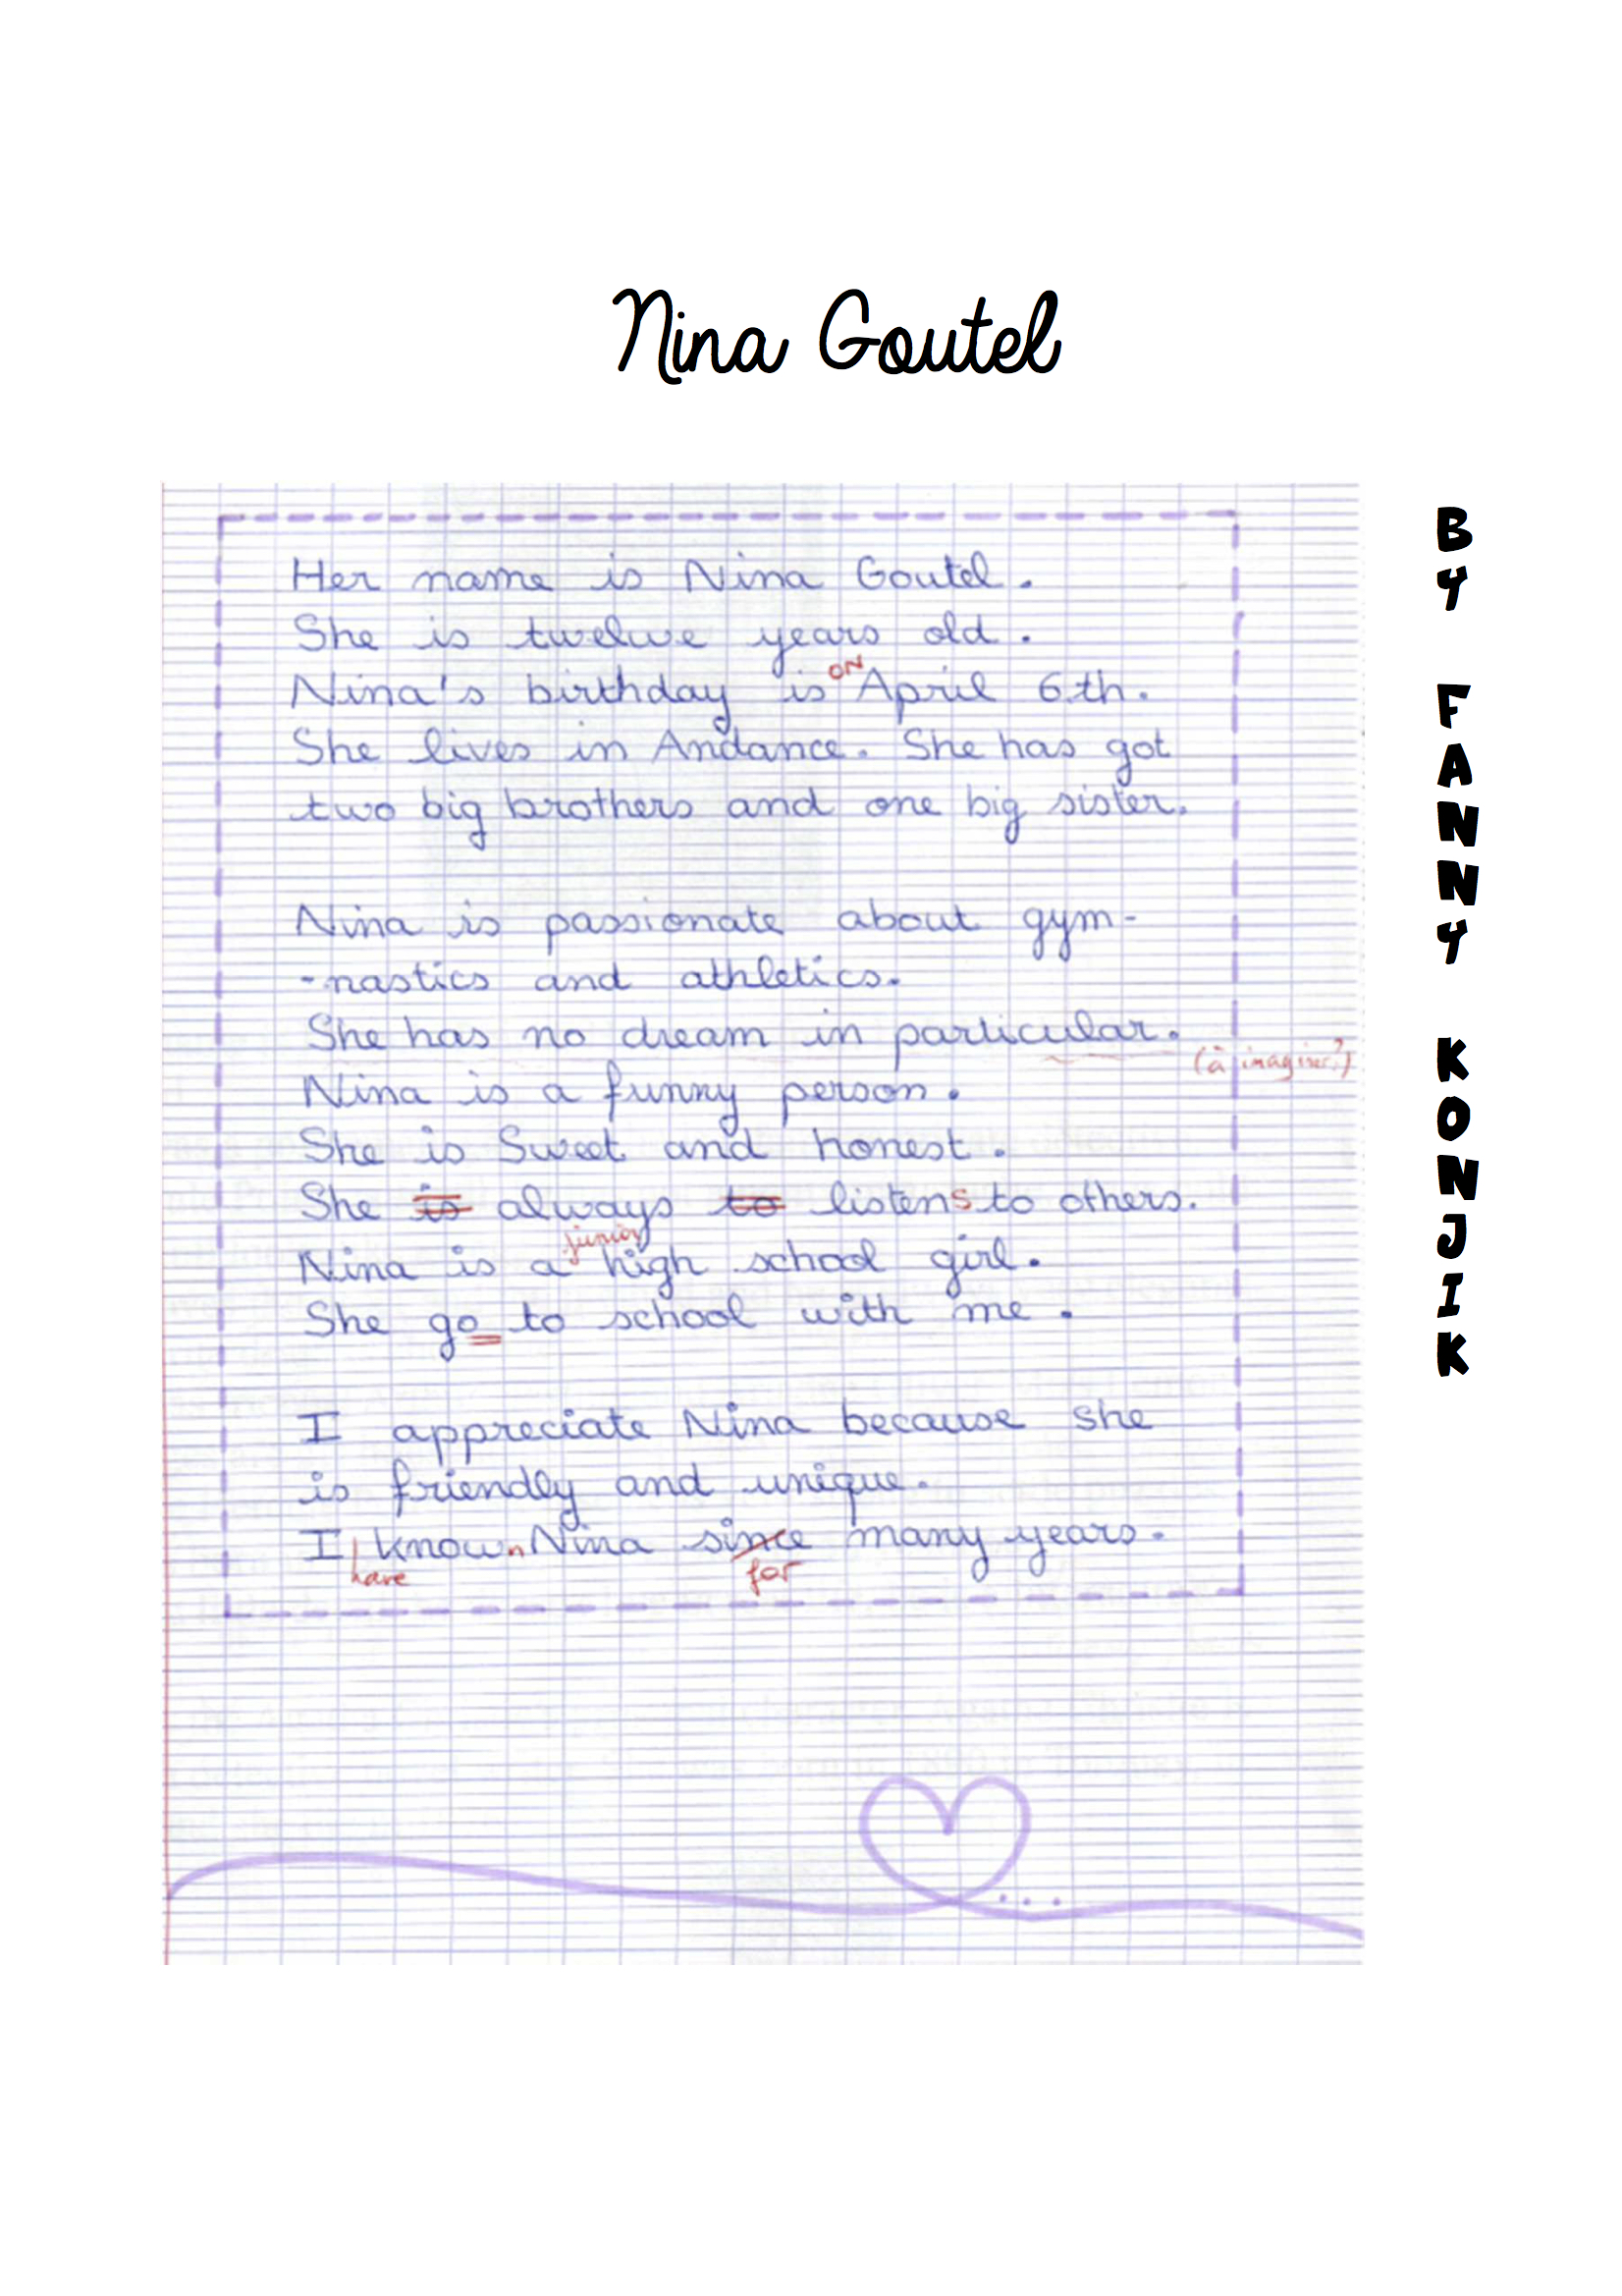 Nina Goutel
Her name is Nina Goutel.
She is twelve years old.
Nina's birthday is ON April 6th.
She lives in Andance. She has got
two big brothers and one big sister.
Nina is passionate about gym-
-nastics and athletics.
She has no dream in particular.
(à imaginer?)
Nina is a funny person.
She is Sweet and honest.
She is always to listens to others.
Nina is a junior high school girl.
She go to school with me.
I appreciate Nina because she
is friendly and unique.
I have known Nina since for many years.
...
BY FANNY KONJIK